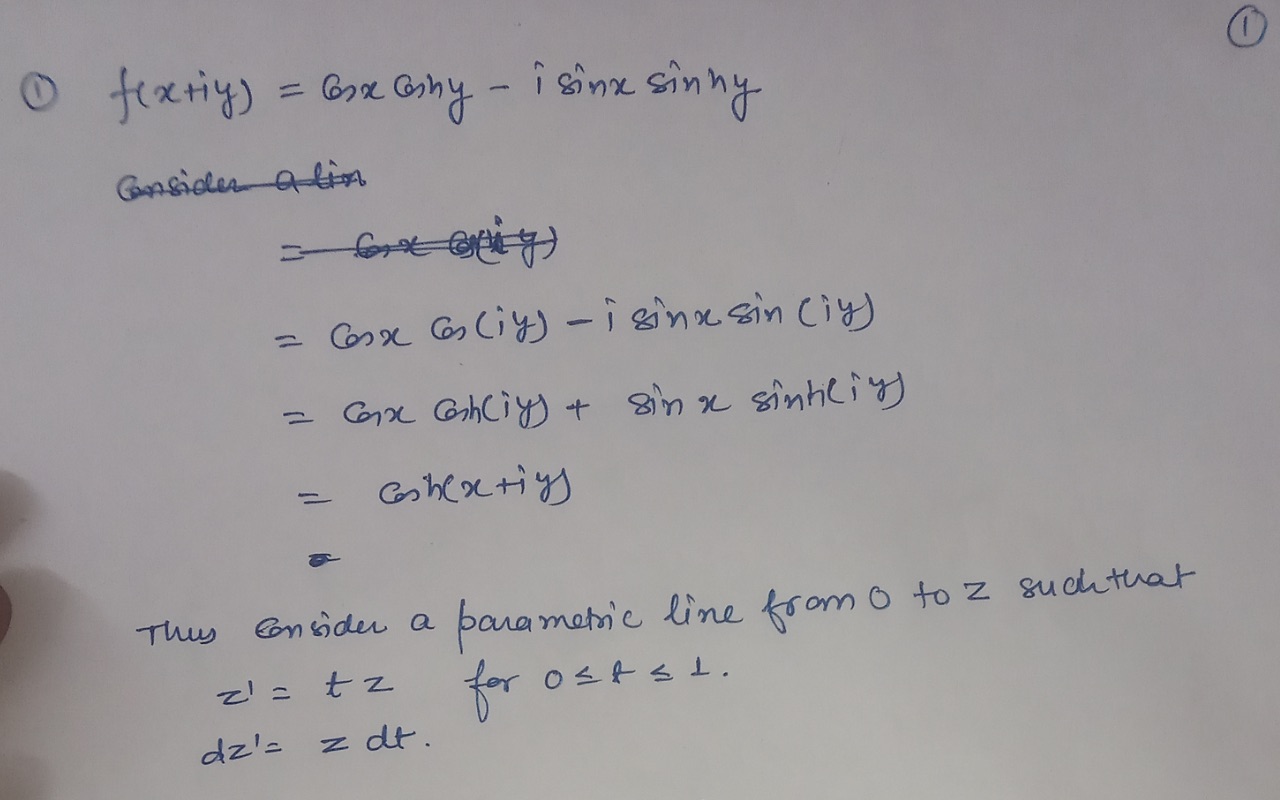 ①
① f(x+iy) = Cosx Coshy - i sinx sinhy
Consider a lin
= Cosx Cos(iy)
= Cosx Cos(iy) - i sinx sin(iy)
= Cosx Cosh(iy) + sin x sinh(iy)
= Cosh(x+iy)
=
Thus Consider a parametric line from 0 to z such that
z' = tz for 0 ≤ t ≤ 1.
dz' = z dt.